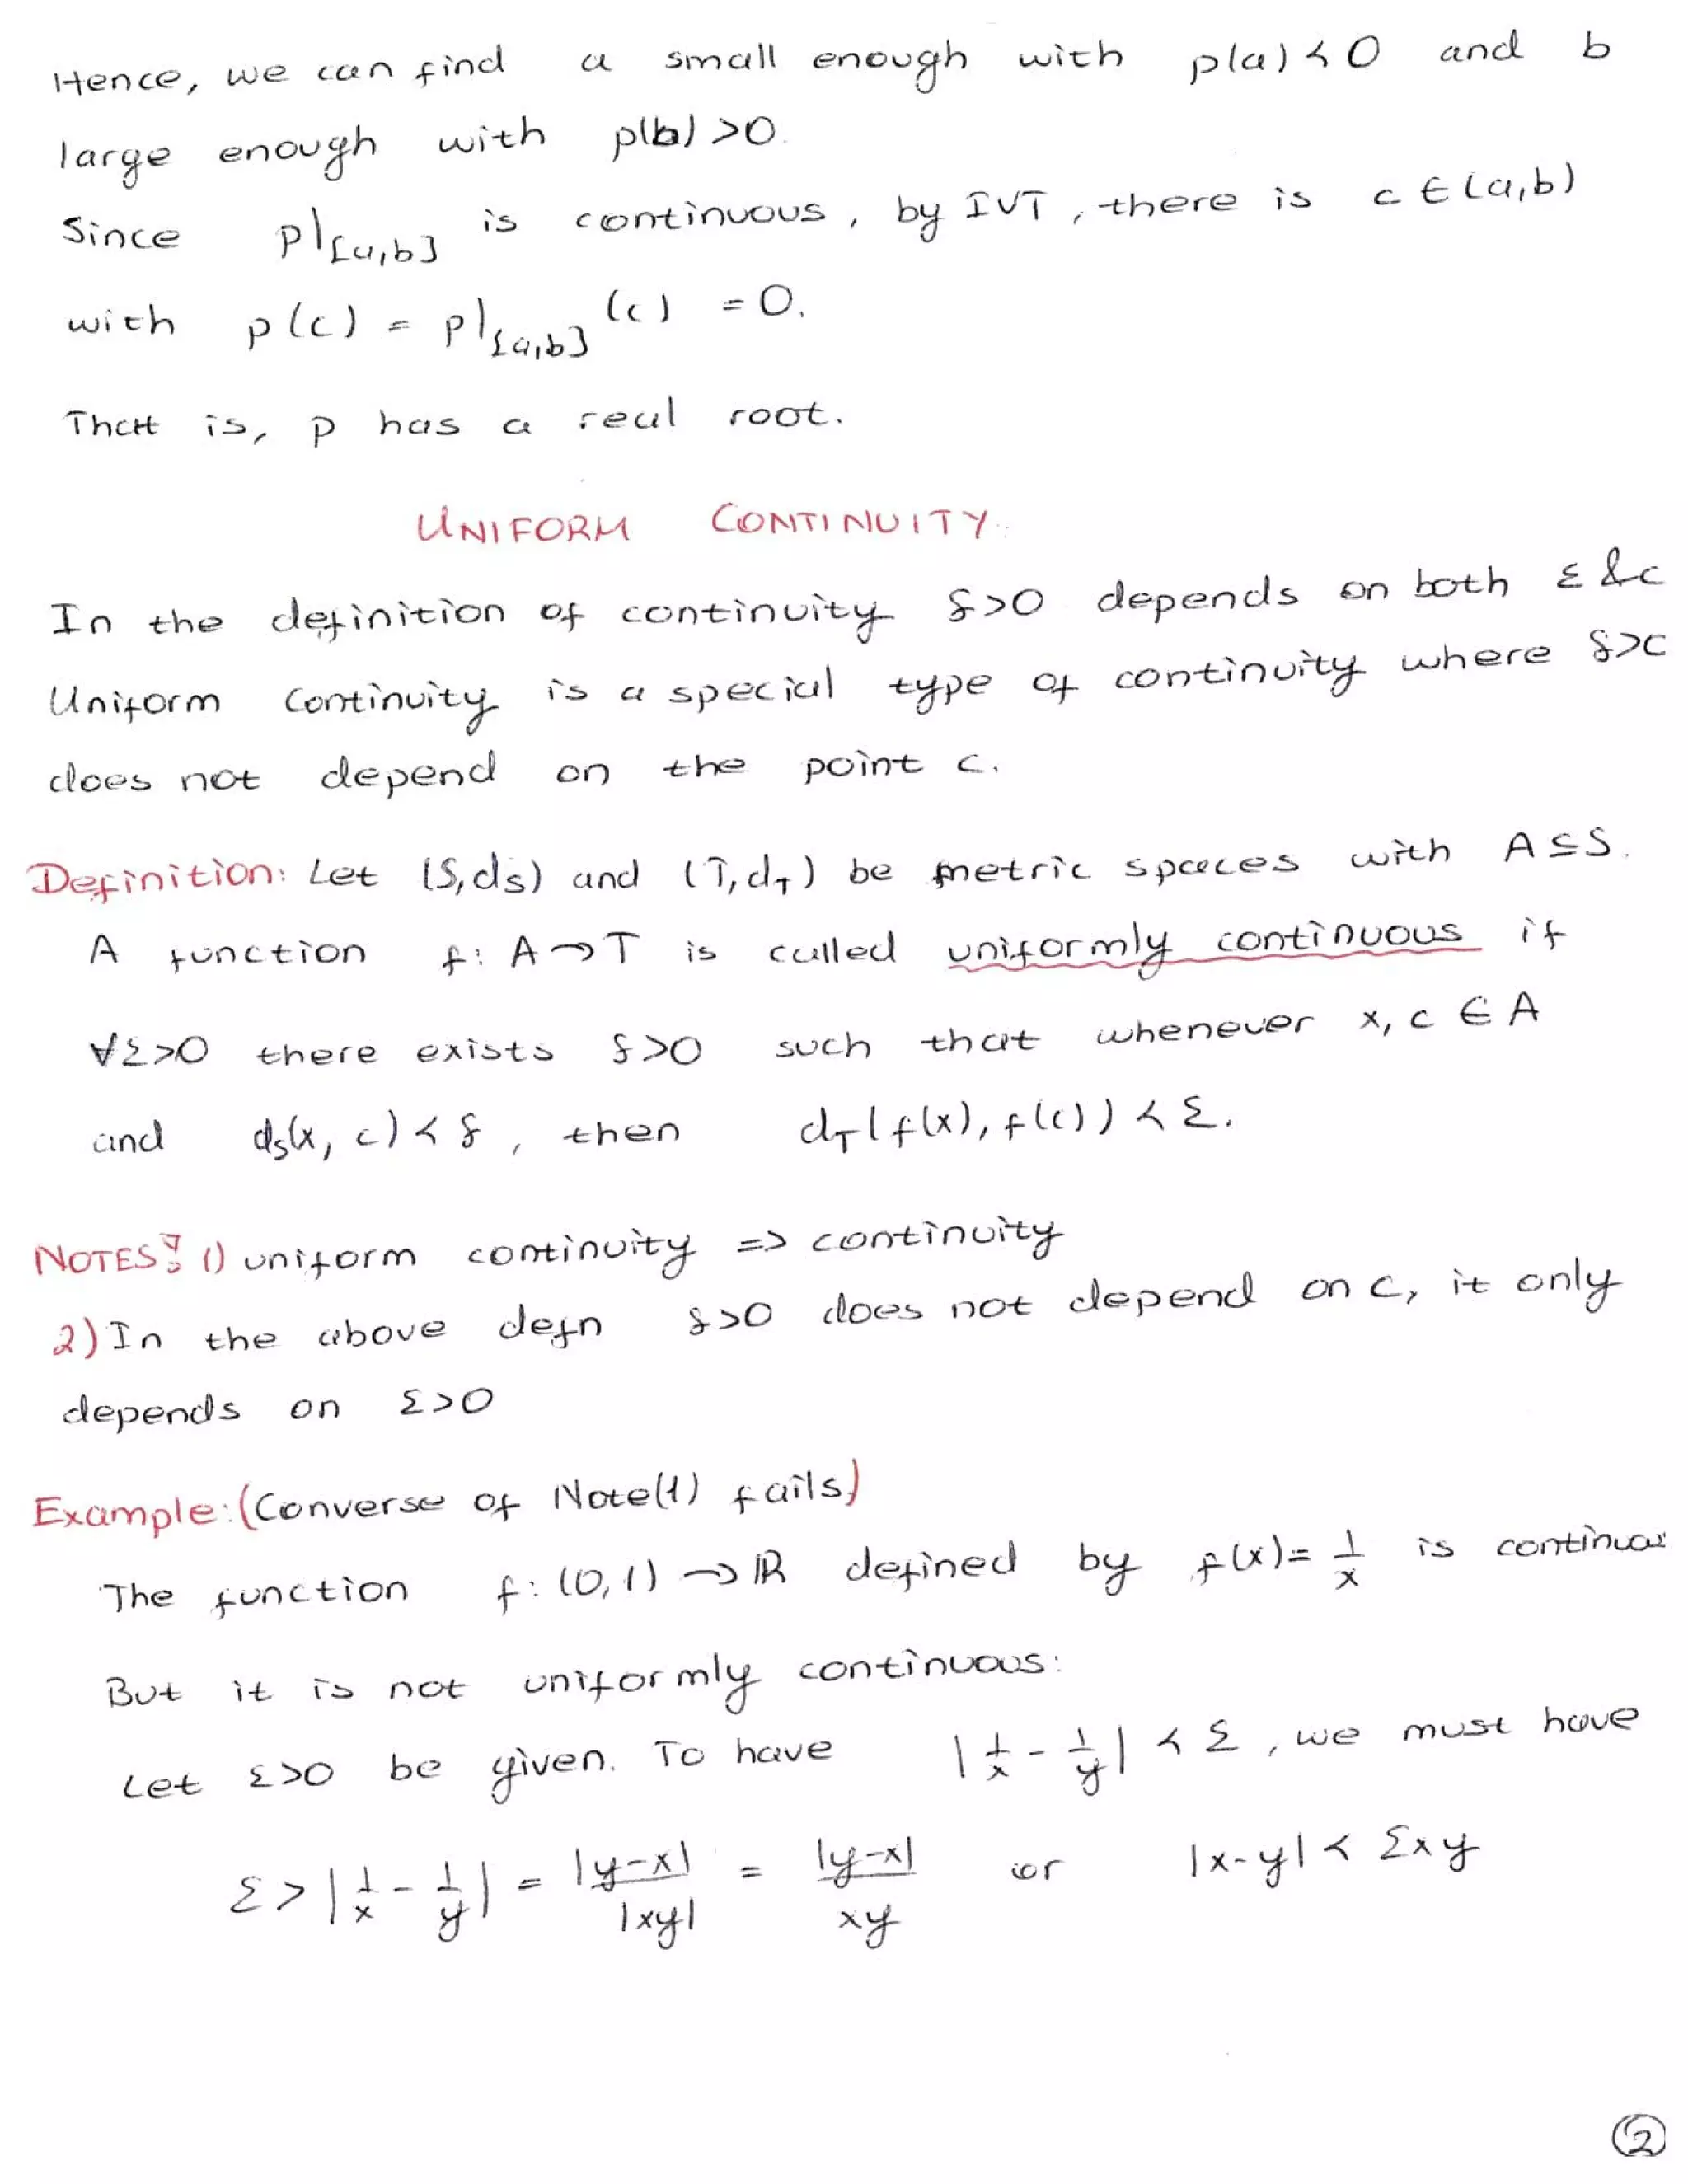 Hence, we can find a small enough with p(a) < 0 and b
large enough with p(b) > 0.
Since p|[a,b] is continuous, by IVT, there is c ∈ (a,b)
with p(c) = p|[a,b] (c) = 0.
That is, p has a real root.
UNIFORM CONTINUITY
In the definition of continuity δ>0 depends on both ε & c
Uniform Continuity is a special type of continuity where δ>c
does not depend on the point c.
Definition: Let (S,ds) and (T,dT) be metric spaces with A ⊆ S.
A function f: A → T is called uniformly continuous if
∀ε>0 there exists δ>0 such that whenever x, c ∈ A
and ds(x, c) < δ, then dT(f(x), f(c)) < ε.
NOTES: 1) uniform continuity => continuity
2) In the above defn δ>0 does not depend on c, it only
depends on ε>0
Example: (Converse of Note(1) fails)
The function f: (0,1) → ℝ defined by f(x) = 1/x is continuou
But it is not uniformly continuous:
Let ε>0 be given. To have |1/x - 1/y| < ε, we must have
ε > |1/x - 1/y| = |y-x|/|xy| = |y-x|/xy or |x-y| < εxy
2